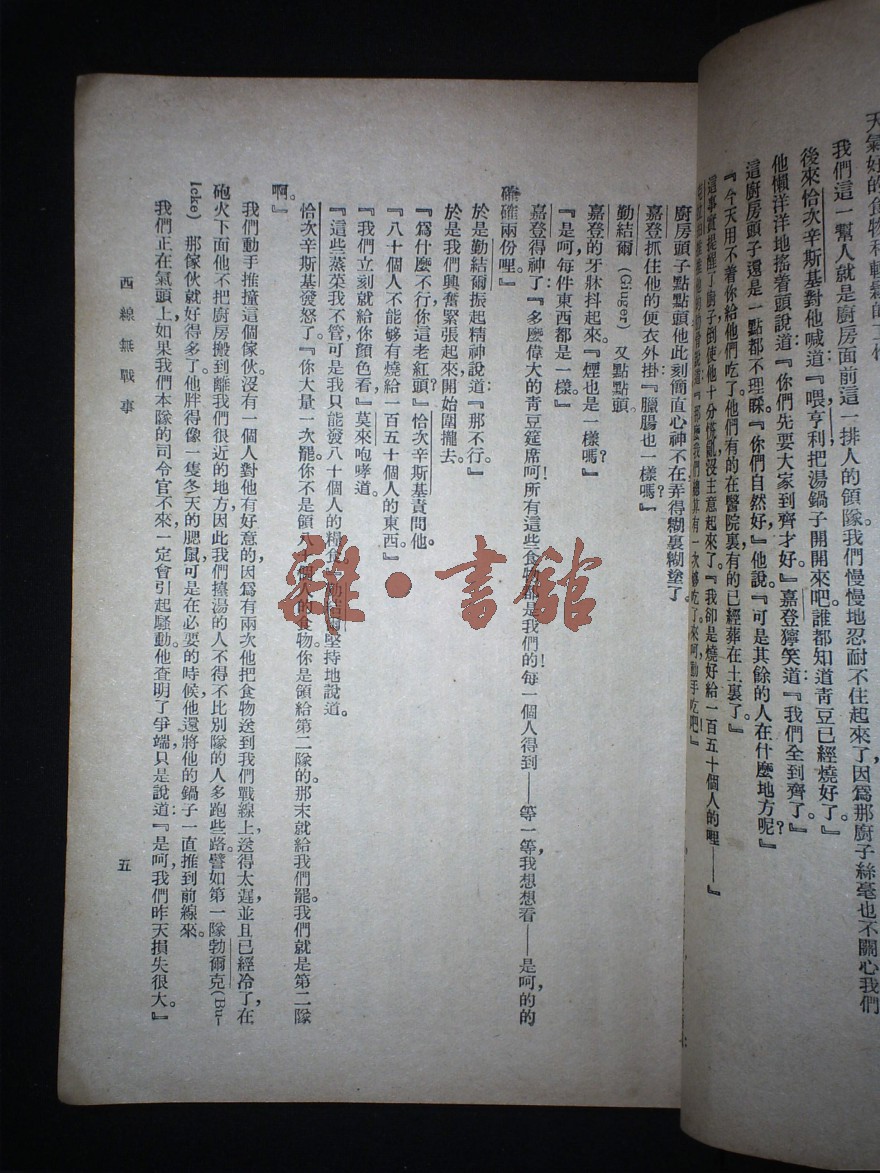 天氣好的食物和輕鬆的工作
我們這一幫人就是廚房面前這一排人的領隊，我們慢慢地忍耐不住起來了，因爲那廚子絲毫也不關心我們
後來恰次辛斯基對他喊道：『喂，亨利，把湯鍋子開開來吧，誰都知道青豆已經燒好了。』
他懶洋洋地搖着頭說道：『你們先要大家到齊才好。』嘉登獰笑道：『我們全到齊了。』
這廚房頭子還是一點都不理睬。『你們自然好，』他說。『可是其餘的人在什麼地方呢？』
『今天用不着你給他們吃了。他們有的在醫院裏，有的已經葬在土裏了。』
這事實提醒了廚子，倒使他十分慌亂，沒主意起來了。『我卻是燒好給一百五十個人的哩——』
『那麼我們總算有一次夠吃了。來呵，動手吃吧！』
廚房頭子點點頭，他此刻簡直心神不在，弄得糊裏糊塗了。
嘉登抓住他的便衣外掛。『臘腸也一樣嗎？』
勤結爾 (Ginger) 又點點頭。
嘉登的牙牀抖起來。『煙也是一樣嗎？』
『是呵，每件東西都是一樣。』
嘉登得神了：『多麼偉大的青豆筵席呵！所有這些食物都是我們的！每一個人得到——等一等，我想想看——是呵，的的
確確兩份哩。』
於是勤結爾振起精神說道：『那不行。』
於是我們興奮緊張起來，開始圍攏去。
『爲什麼不行，你這老紅頭？』恰次辛斯基責問他。
『八十個人不能够有燒給一百五十個人的東西。』
『我們立刻就給你顏色看，』莫來咆哮道。
『這些蒸菜我不管，可是我只能發八十個人的糧食，』勤結爾堅持地說道。
恰次辛斯基發怒了。『你大量一次罷。你不是領八十個人的食物。你是領給第二隊的。那末就給我們罷。我們就是第二隊
啊。』
我們動手推撞這個傢伙。沒有一個人對他有好意的，因爲有兩次他把食物送到我們戰線上，送得太遲，並且已經冷了，在
砲火下面他不把廚房搬到離我們很近的地方，因此我們擡湯的人不得不比別隊的人多跑些路。譬如第一隊勃爾克(Bu-
lcke) 那傢伙就好得多了。他胖得像一隻冬天的腮鼠，可是在必要的時候，他還將他的鍋子一直推到前線來。
我們正在氣頭上，如果我們本隊的司令官不來，一定會引起騷動。他查明了爭端，只是說道：『是呵，我們昨天損失很大。』
西線無戰事
五
雜·書館